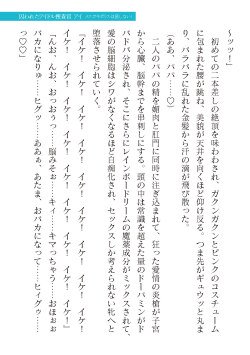 ～ッッ！」
初めての二本差しの絶頂を味わわされ、ガクンガクンとピンクのコスチューム
に包まれた腰が跳ね、美貌が天井を向くほど仰け反る。つま先がギュウッと丸ま
り、バラバラに乱れた金髪から汗の滴が飛び散った。
（ああっ、パパ……♡）
二人のパパの精を媚肉と肛門に同時に注ぎ込まれて、狂った愛情の炎槍が子宮
から心臓、脳幹までを串刺しにする。頭の中は常識を超えた量のドーパミンがド
バドバ分泌され、そこにさらにインボードリームの魔薬成分がミックスされて、
愛の脳細胞はシワがなくなるほど白痴化され、セックスしか考えられない牝へと
堕落させられていく。
『イケ！　イケ！　イケ！　イケ！　イケ！　イケ！　イケ！　イケ！
イケ！　イケ！　イケ！　イケ！　イケ！　イケ！　イケ！』
「んお、んお、おっおぅっ……脳みそぉ……キィ……キマっちゃう……おほぉぉ
バカになりゅ……ヒグッ……ああぁ、あたま、おバカになって……ヒィグゥ……
っ♡♡」